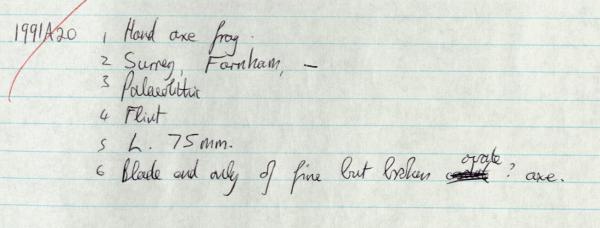 1991A20 1 Hand axe frag.
2 Surrey, Farnham, —
3 Palaeolithic
4 Flint
5 L. 75mm.
6 Blade end only of fine but broken ovate ? axe.